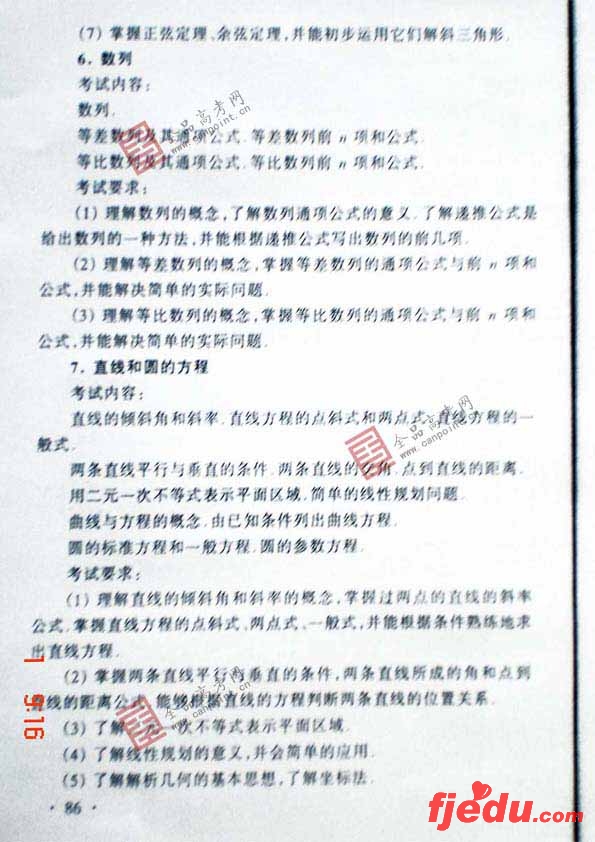 (7) 掌握正弦定理、余弦定理,并能初步运用它们解斜三角形.
6. 数列
考试内容:
数列.
等差数列及其通项公式.等差数列前 n 项和公式.
等比数列及其通项公式.等比数列前 n 项和公式.
考试要求:
(1) 理解数列的概念,了解数列通项公式的意义.了解递推公式是
给出数列的一种方法,并能根据递推公式写出数列的前几项.
(2) 理解等差数列的概念,掌握等差数列的通项公式与前 n 项和
公式,并能解决简单的实际问题.
(3) 理解等比数列的概念,掌握等比数列的通项公式与前 n 项和
公式,并能解决简单的实际问题.
7. 直线和圆的方程
考试内容:
直线的倾斜角和斜率.直线方程的点斜式和两点式.直线方程的一
般式.
两条直线平行与垂直的条件.两条直线的交角.点到直线的距离.
用二元一次不等式表示平面区域.简单的线性规划问题.
曲线与方程的概念.由已知条件列出曲线方程.
圆的标准方程和一般方程.圆的参数方程.
考试要求:
(1) 理解直线的倾斜角和斜率的概念,掌握过两点的直线的斜率
公式.掌握直线方程的点斜式、两点式、一般式,并能根据条件熟练地求
出直线方程.
(2) 掌握两条直线平行与垂直的条件,两条直线所成的角和点到
直线的距离公式.能够根据直线的方程判断两条直线的位置关系.
(3) 了解 一次不等式表示平面区域.
(4) 了解线性规划的意义,并会简单的应用.
(5) 了解解析几何的基本思想,了解坐标法.
· 86 ·
全品高考网
www.canpoint.cn
全品高考网
www.canpoint.cn
全品高考网
www.canpoint.cn
1 9:16
fjedu.com